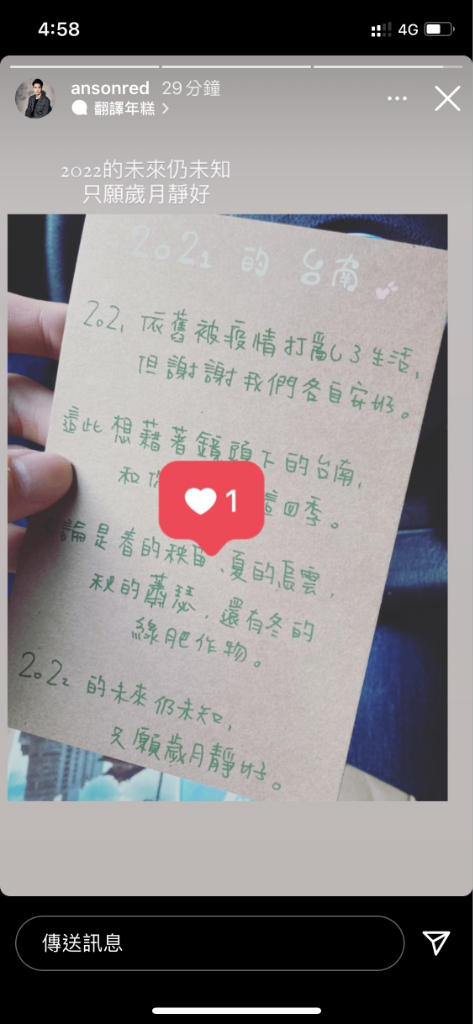 4:58
4G
ansonred 29分鐘
翻譯年糕 >
2022的未來仍未知
只願歲月靜好
2021 的 台南
2021 依舊被疫情打亂了生活,
但謝謝我們各自安好。
這此想藉著鏡頭下的台南,
和 這四季。
1
論是春的秧苗、夏的烏雲,
秋的蕭瑟,還有冬的
綠肥作物。
2022 的未來仍未知,
只願歲月靜好。
傳送訊息